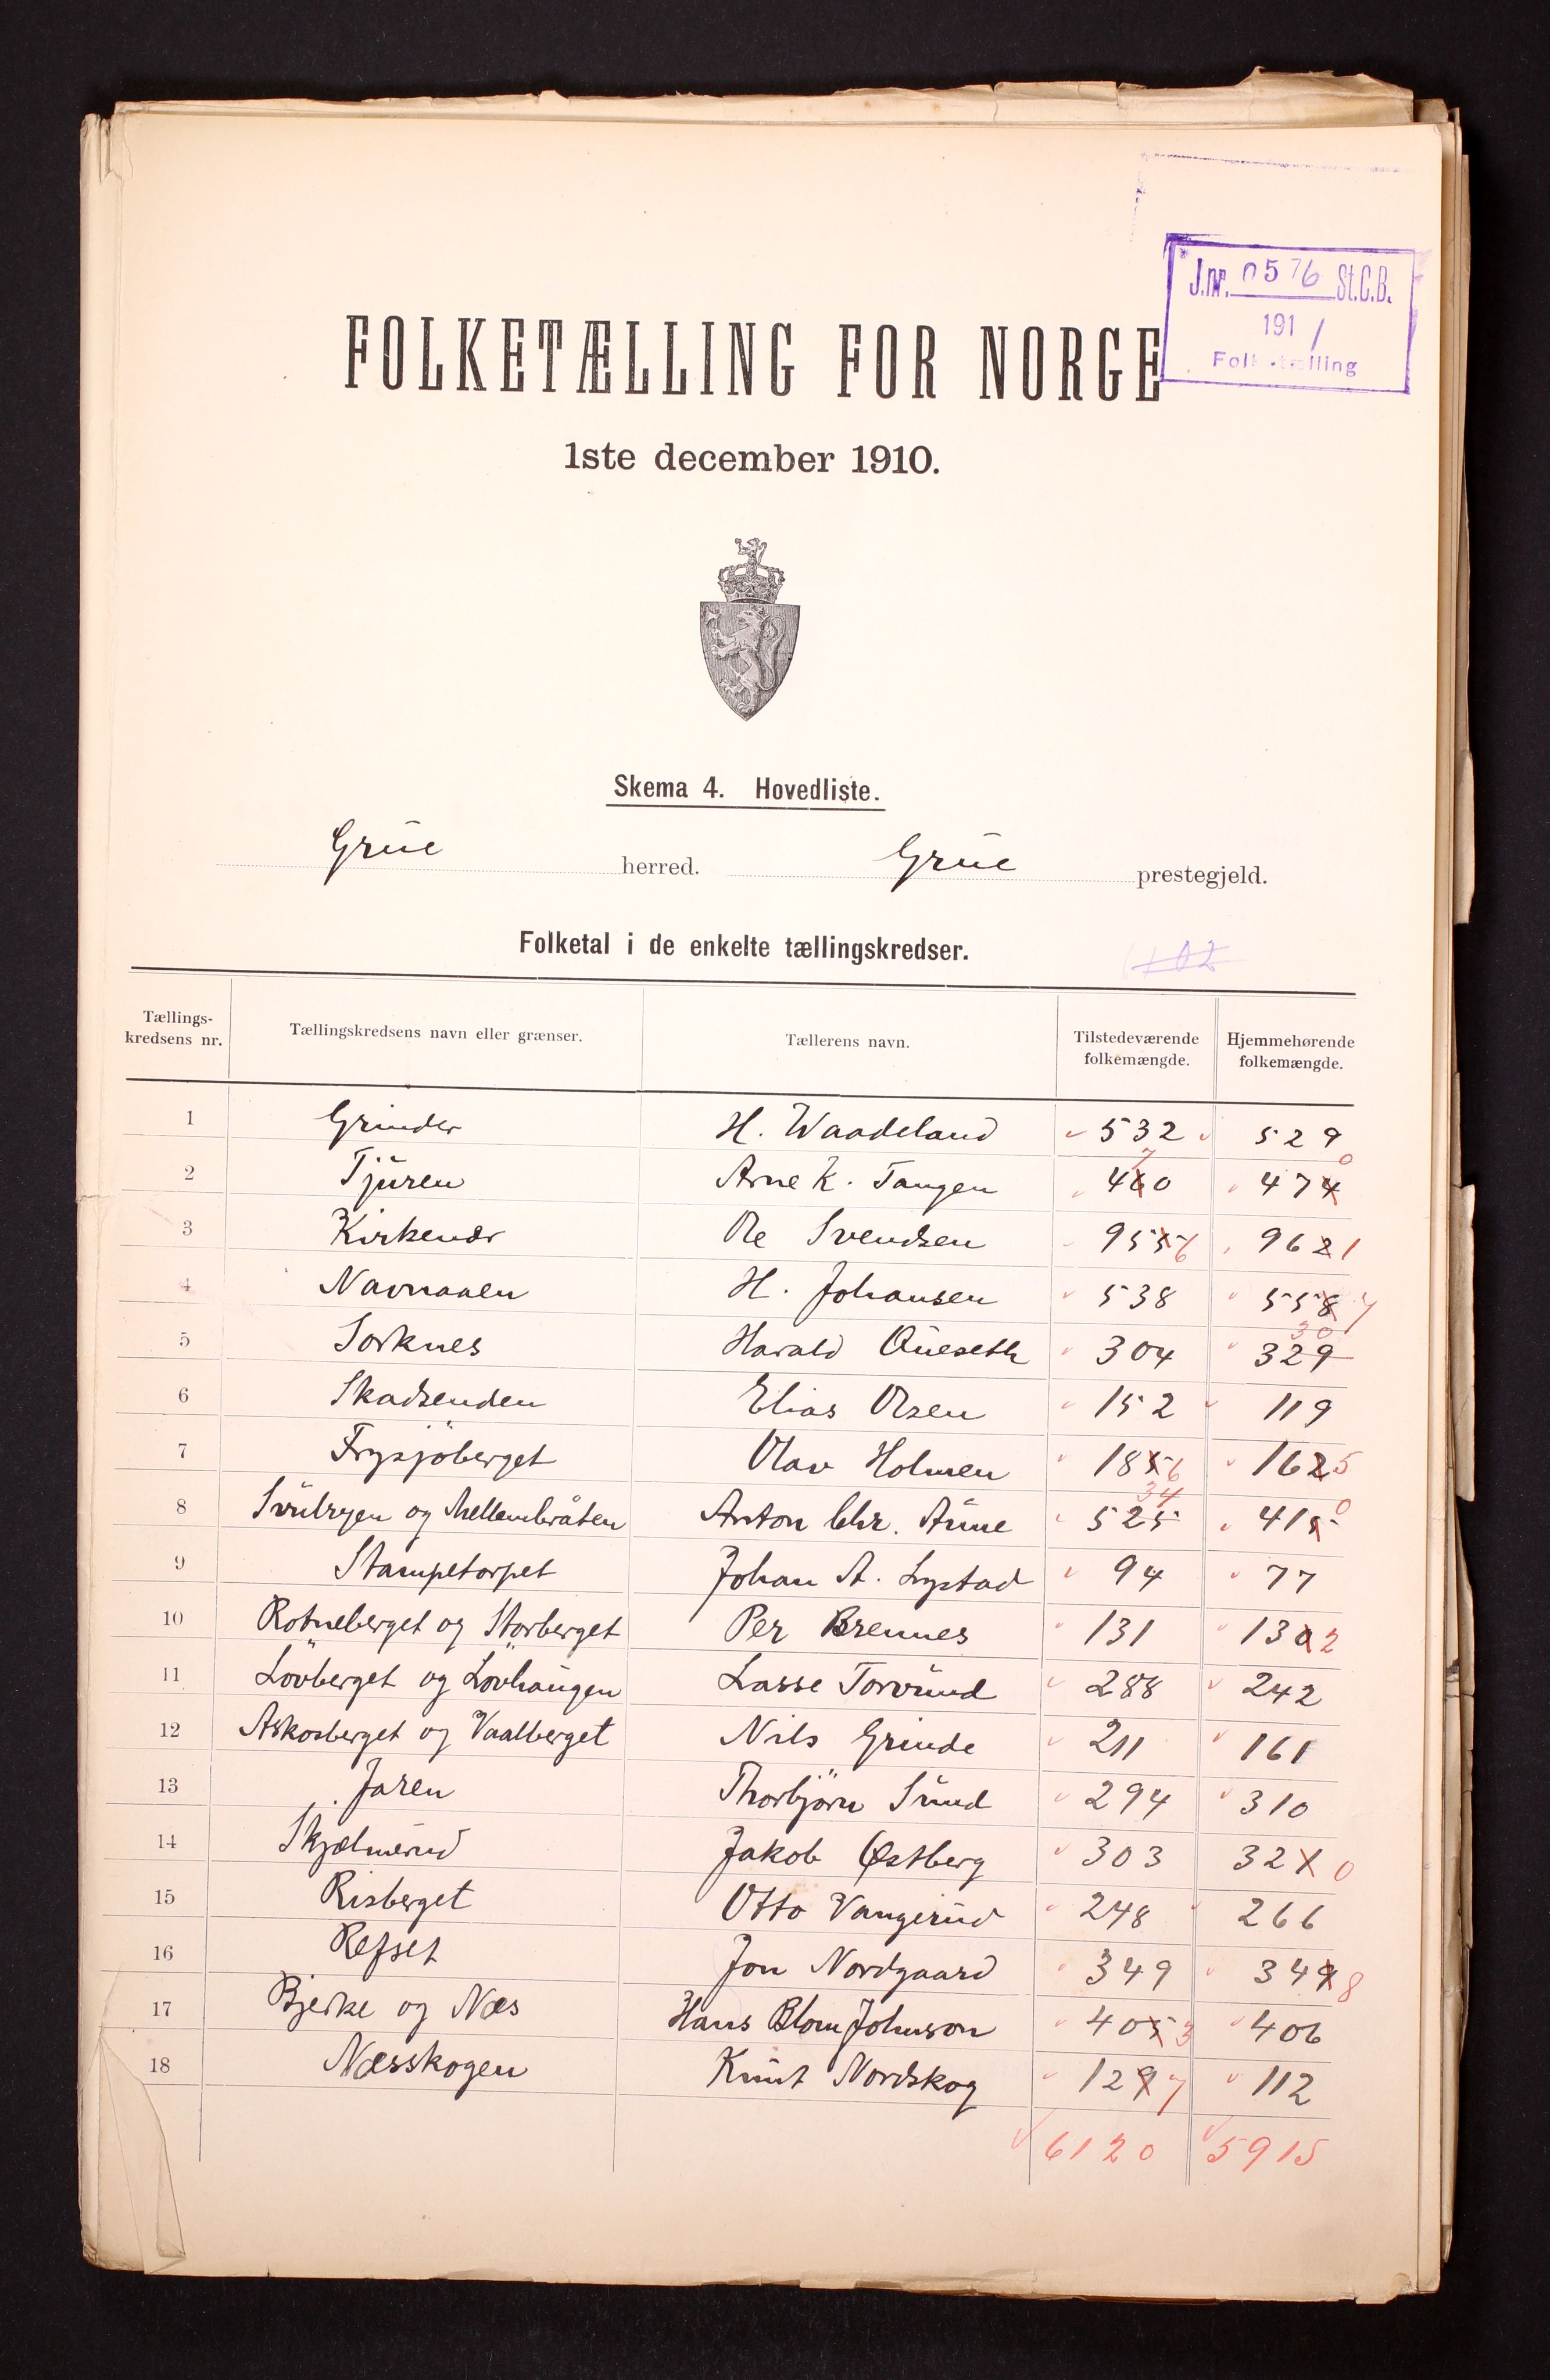 J.nr. 0576 St.C.B.
191 1
Folketælling
FOLKETÆLLING FOR NORGE
1ste december 1910.
Skema 4. Hovedliste.
Grue herred. Grue prestegjeld.
Folketal i de enkelte tællingskredser.
Tællings-kredsens nr. Tællingskredsens navn eller grænser. Tællerens navn. Tilstedeværende folkemængde. Hjemmehørende folkemængde.
1 Grinder H. Waadeland 532 529
2 Tjuren Arne K. Tangen 460 7 474 0
3 Kirkenær Ole Svendsen 955 6 962 1
4 Navnaaen H. Johansen 538 558 7
5 Sorknes Harald Queseth 304 329 30
6 Skadsenden Elias Olsen 152 119
7 Frysjöberget Olav Holmen 185 6 162 5
8 Svulryen og Mellembråten Anton Chr. Aune 525 34 415 0
9 Stampetorpet Johan A. Lystad 94 77
10 Rotneberget og Storberget Per Brennes 131 130 2
11 Lövberget og Lövhaugen Lasse Torvund 288 242
12 Askosberget og Vaalberget Nils Grinde 211 161
13 Jaren Thorbjörn Sund 294 310
14 Skjælnerud Jakob Østberg 303 321 0
15 Risberget Otto Vangerud 248 266
16 Refset Jon Nordgaard 349 349 8
17 Bjerke og Næs Hans Blom Johnson 405 3 406
18 Næsskogen Knut Nordskog 129 7 112
6120 5915